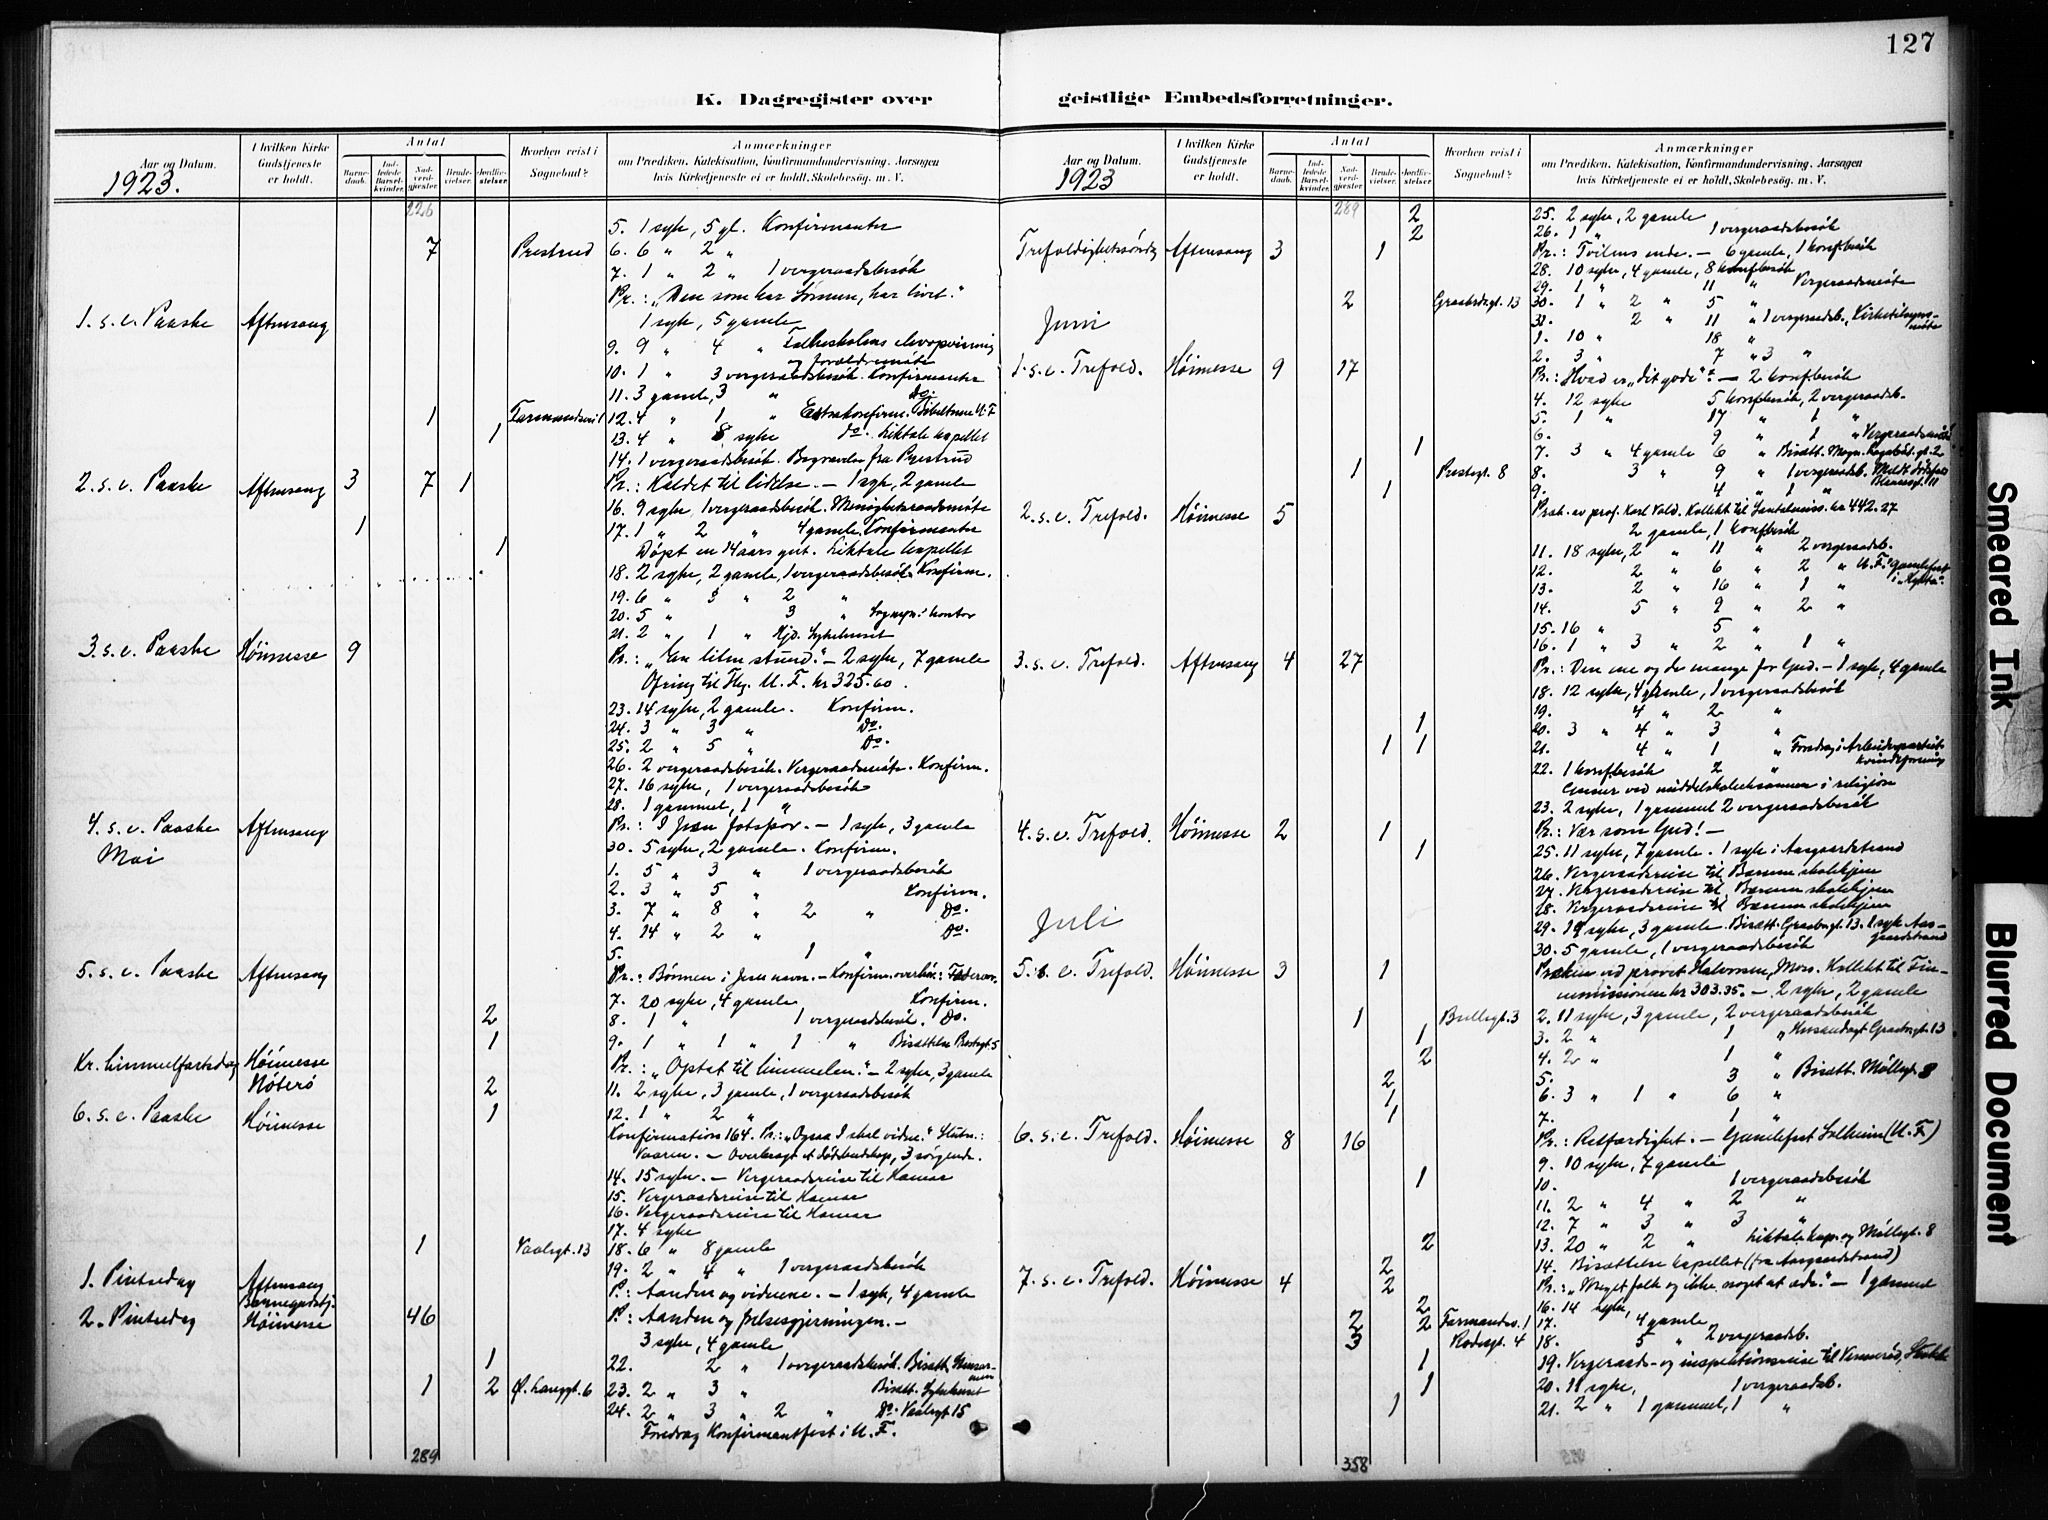 127
K. Dagregister over geistlige Embedsforretninger.
Aar og Datum.
1923.
I hvilken Kirke Gudstjeneste er holdt.
Antal
Barne-daab.
Ind-ledede Barsel-kvinder.
Nad-verd-gjester
Brude-vielser.
Jordfæ-stelser
Hvorhen reist i Sognebud?
Anmærkninger
om Prædiken, Katekisation, Konfirmandundervisning. Aarsagen
hvis Kirketjeneste ei er holdt, Skolebesøg, m. V.
226
5. 1 syk, 5 gl. Konfirmanter
7 Prestrud 6. 6 " 2 "
7. 1 " 2 " 1 vergeraadsbesök
Pr.: "Den som har Sönnen, har livet."
1. s. e. Paaske Aftensang 1 syk, 5 gamle
9. 9 " 4 " Folkeskolens elevopvisning
og forældremöte
10. 1 " 3 vergeraadsbesök. Konfirmanter
11. 3 gamle, 3 " Do.
1 Farmandsvei 1 12. 4 " 1 " Ekstrakonfirm. Bibeltime U. F
1 13. 4 " 8 syke Do. Liktale kapellet
14. 1 vergeraadsbesök. Begravelse fra Prestrud
2. s. e. Paaske Aftensang 3 7 1 Pr.: Kaldet til lidelse. — 1 syk, 2 gamle
16. 9 syke, 1 vergeraadsbesök. Menighetsraadsmöte
1 17. 1 " 2 " 4 gamle. Konfirmanter
1 Döpt en 14 aars gut. Liktale kapellet
18. 2 syke, 2 gamle, 1 vergeraadsbesök. Konfirm.
19. 6 " 3 " 2 "
20. 5 " 3 "
21. 2 " 1 " Hjd. Sykehuset
3. s. e. Paaske Höimesse 9 Pr.: "En liten stund." — 2 syke, 7 gamle
Ofring til U. F. kr 325.60.
23. 14 syke, 2 gamle. Konfirm.
24. 3 " 3 " Do.
25. 2 " 5 " Do.
26. 2 vergeraadsbesök. Vergeraadsmöte. Konfirm.
27. 16 syke, 1 vergeraadsbesök
28. 1 gammel, 1 "
4. s. e. Paaske Aftensang Pr.: I Jesu fotspor. — 1 syk, 3 gamle
Mai 30. 5 syke, 2 gamle. Konfirm.
1. 5 " 3 " 1 vergeraadsbesök
2. 3 " 5 " Konfirm.
3. 7 " 8 " 2 " Do.
4. 14 " 2 " Do.
5. 1 "
5. s. e. Paaske Aftensang Pr.: Bönnen i Jesu navn. — Konfirm.
7. 20 syke, 4 gamle Konfirm.
2 8. 1 " 1 vergeraadsbesök. Do.
1 9. 1 " 1 " 1 " Bisættelse Prestegt. 5
Kr. himmelfartsdag Höimesse Pr.: "Optat til himmelen." — 2 syke, 3 gamle
Nöterö 2 11. 2 syke, 3 gamle, 1 vergeraadsbesök
6. s. e. Paaske Höimesse 1 12. 1 " 2 "
Konfirmation 164. Pr.: "Ogsaa I skal vidne."
— Overbragt et dödsbudskap, 3 sörgende.
14. 15 syke. — Vergeraadsreise til Hamar
15. Vergeraadsreise til Hamar
16. Vergeraadsreise til Hamar
17. 4 syke
1 18. 6 " 8 gamle
19. 2 " 4 " 1 vergeraadsbesök
1. Pintsedag Aftensang P.: Aanden og vidnene. — 1 syk, 4 gamle
Barnegudstj.
2. Pintsedag Höimesse 46 P.: Aanden og frelsesgjerningen. —
3 syke, 4 gamle
1 22. 2 " 1 vergeraadsbesök. Bisætt.
1 2 Ø. Langgt. 6 23. 2 " 3 " Bisætt. Sykehuset
24. 2 " 3 " 2 " Do.
Foredrag Konfirmantfest i U. F.
289
Aar og Datum.
1923
I hvilken Kirke Gudstjeneste er holdt.
Antal
Barne-daab.
Ind-ledede Barsel-kvinder.
Nad-verd-gjester
Brude-vielser.
Jordfæ-stelser
Hvorhen reist i Sognebud?
Anmærkninger
om Prædiken, Katekisation, Konfirmandundervisning. Aarsagen
hvis Kirketjeneste ei er holdt, Skolebesøg, m. V.
289 2 25. 2 syke, 2 gamle
2 26. 1 " 1 vergeraadsbesök
Trefoldighetssöndag Aftensang 3 1 Pr.: Tvilens ende. — 6 gamle, 1 konf.besök
28. 10 syke, 4 gamle, 8 konf.besök
29. 1 " 11 " Vergeraadsmöte
2 30. 1 " 2 " 5 "
31. 2 " 11 " 1 vergeraadsb. Kirketilsyns-
möte
Juni 1. 10 " 18 "
2. 3 " 7 " 3 "
1. s. e. Trefold. Höimesse 9 17 Pr.: Hvad er "dit gode"? — 2 konf.besök
4. 12 syke 5 konf.besök, 2 vergeraadsb.
5. 1 " 17 " 1 "
6. 9 " 1 " Vergeraadsmöte
1 7. 3 " 4 gamle 6 " Bisætt.
1 Prestegt. 8 8. 3 " 9 " 1 vergeraadsb.
1 9. 4 " 1 "
2. s. e. Trefold. Höimesse 5 Præk. av prof. Karl Vold. Kollekt til Santalmiss. kr 442.27
2 gamle, 1 konf.besök
11. 18 syke, 2 " 11 " 2 vergeraadsb.
12. 2 " 6 " 2 " U. F. gamlefest
13. 2 " 16 " 1 "
14. 5 " 9 " 2 "
15. 16 " 5 "
16. 1 " 3 " 2 " 1 "
3. s. e. Trefold. Aftensang 4 27 Pr.: Den ene og de mange for Gud. — 1 syk, 4 gamle
18. 12 syke, 4 gamle, 1 vergeraadsbesök
19. 4 " 2 "
1 20. 3 " 4 " 3 "
1 1 21. 4 " 1 " Foredrag i Arbeiderpartiets
kvindeforening
22. 1 konf.besök 2 "
Censor ved middelskoleeksamen i religion
23. 2 syke, 1 gammel 2 vergeraadsbesök
4. s. e. Trefold. Höimesse 2 1 Pr.: Vær som Gud! —
1 25. 11 syke, 7 gamle. 1 syk i Aasgaardstrand
26. Vergeraadsreise til Bærum skolehjem
27. Vergeraadsreise til Bærum skolehjem
28. Vergeraadsreise til Bærum skolehjem
Juli 29. 19 syke, 3 gamle. Bisætt. Graabrgt. 13. 1 syk Aas-
gaardstrand
30. 5 gamle, 1 vergeraadsbesök
5. s. e. Trefold. Höimesse 3 1 Præken ved provst Halvorsen, Moss. Kollekt til Fin-
nemissionen kr 303.35. — 2 syke, 2 gamle
1 Bullsgt. 3 2. 11 syke, 3 gamle, 2 vergeraadsbesök
1 3. 2 " 1 " Husandagt Graabrgt. 13
2 4. 2 " 1 "
2 5. 3 " Bisætt. Möllegt. 8
1 6. 3 " 1 " 6 "
1 7. 1 "
6. s. e. Trefold. Höimesse 8 16 Pr.: Retfærdighet. — Gamlefest Solheim (U. F.)
9. 10 syke, 7 gamle
1 10. 1 vergeraadsbesök
11. 2 " 4 " 2 "
12. 7 " 3 " 3 "
2 13. 20 " 2 " Liktale kap. og Möllegt. 8
2 14. Bisættelse kapellet (fra Aasgaardstrand)
7. s. e. Trefold. Höimesse 4 2 Pr.: "Meget folk og ikke noget at æde." — 1 gammel
2 16. 14 syke,
2 2 Farmandsv. 1 17. 4 gamle
3 18. 5 " 2 vergeraadsb.
1 19. Vergeraads- og inspektionsreise til Vennerød, Stokke
1 20. 11 syke, 1 vergeraadsb.
1 21. 2 " 1 gammel, 1 "
358
Smeared Ink
Blurred Document